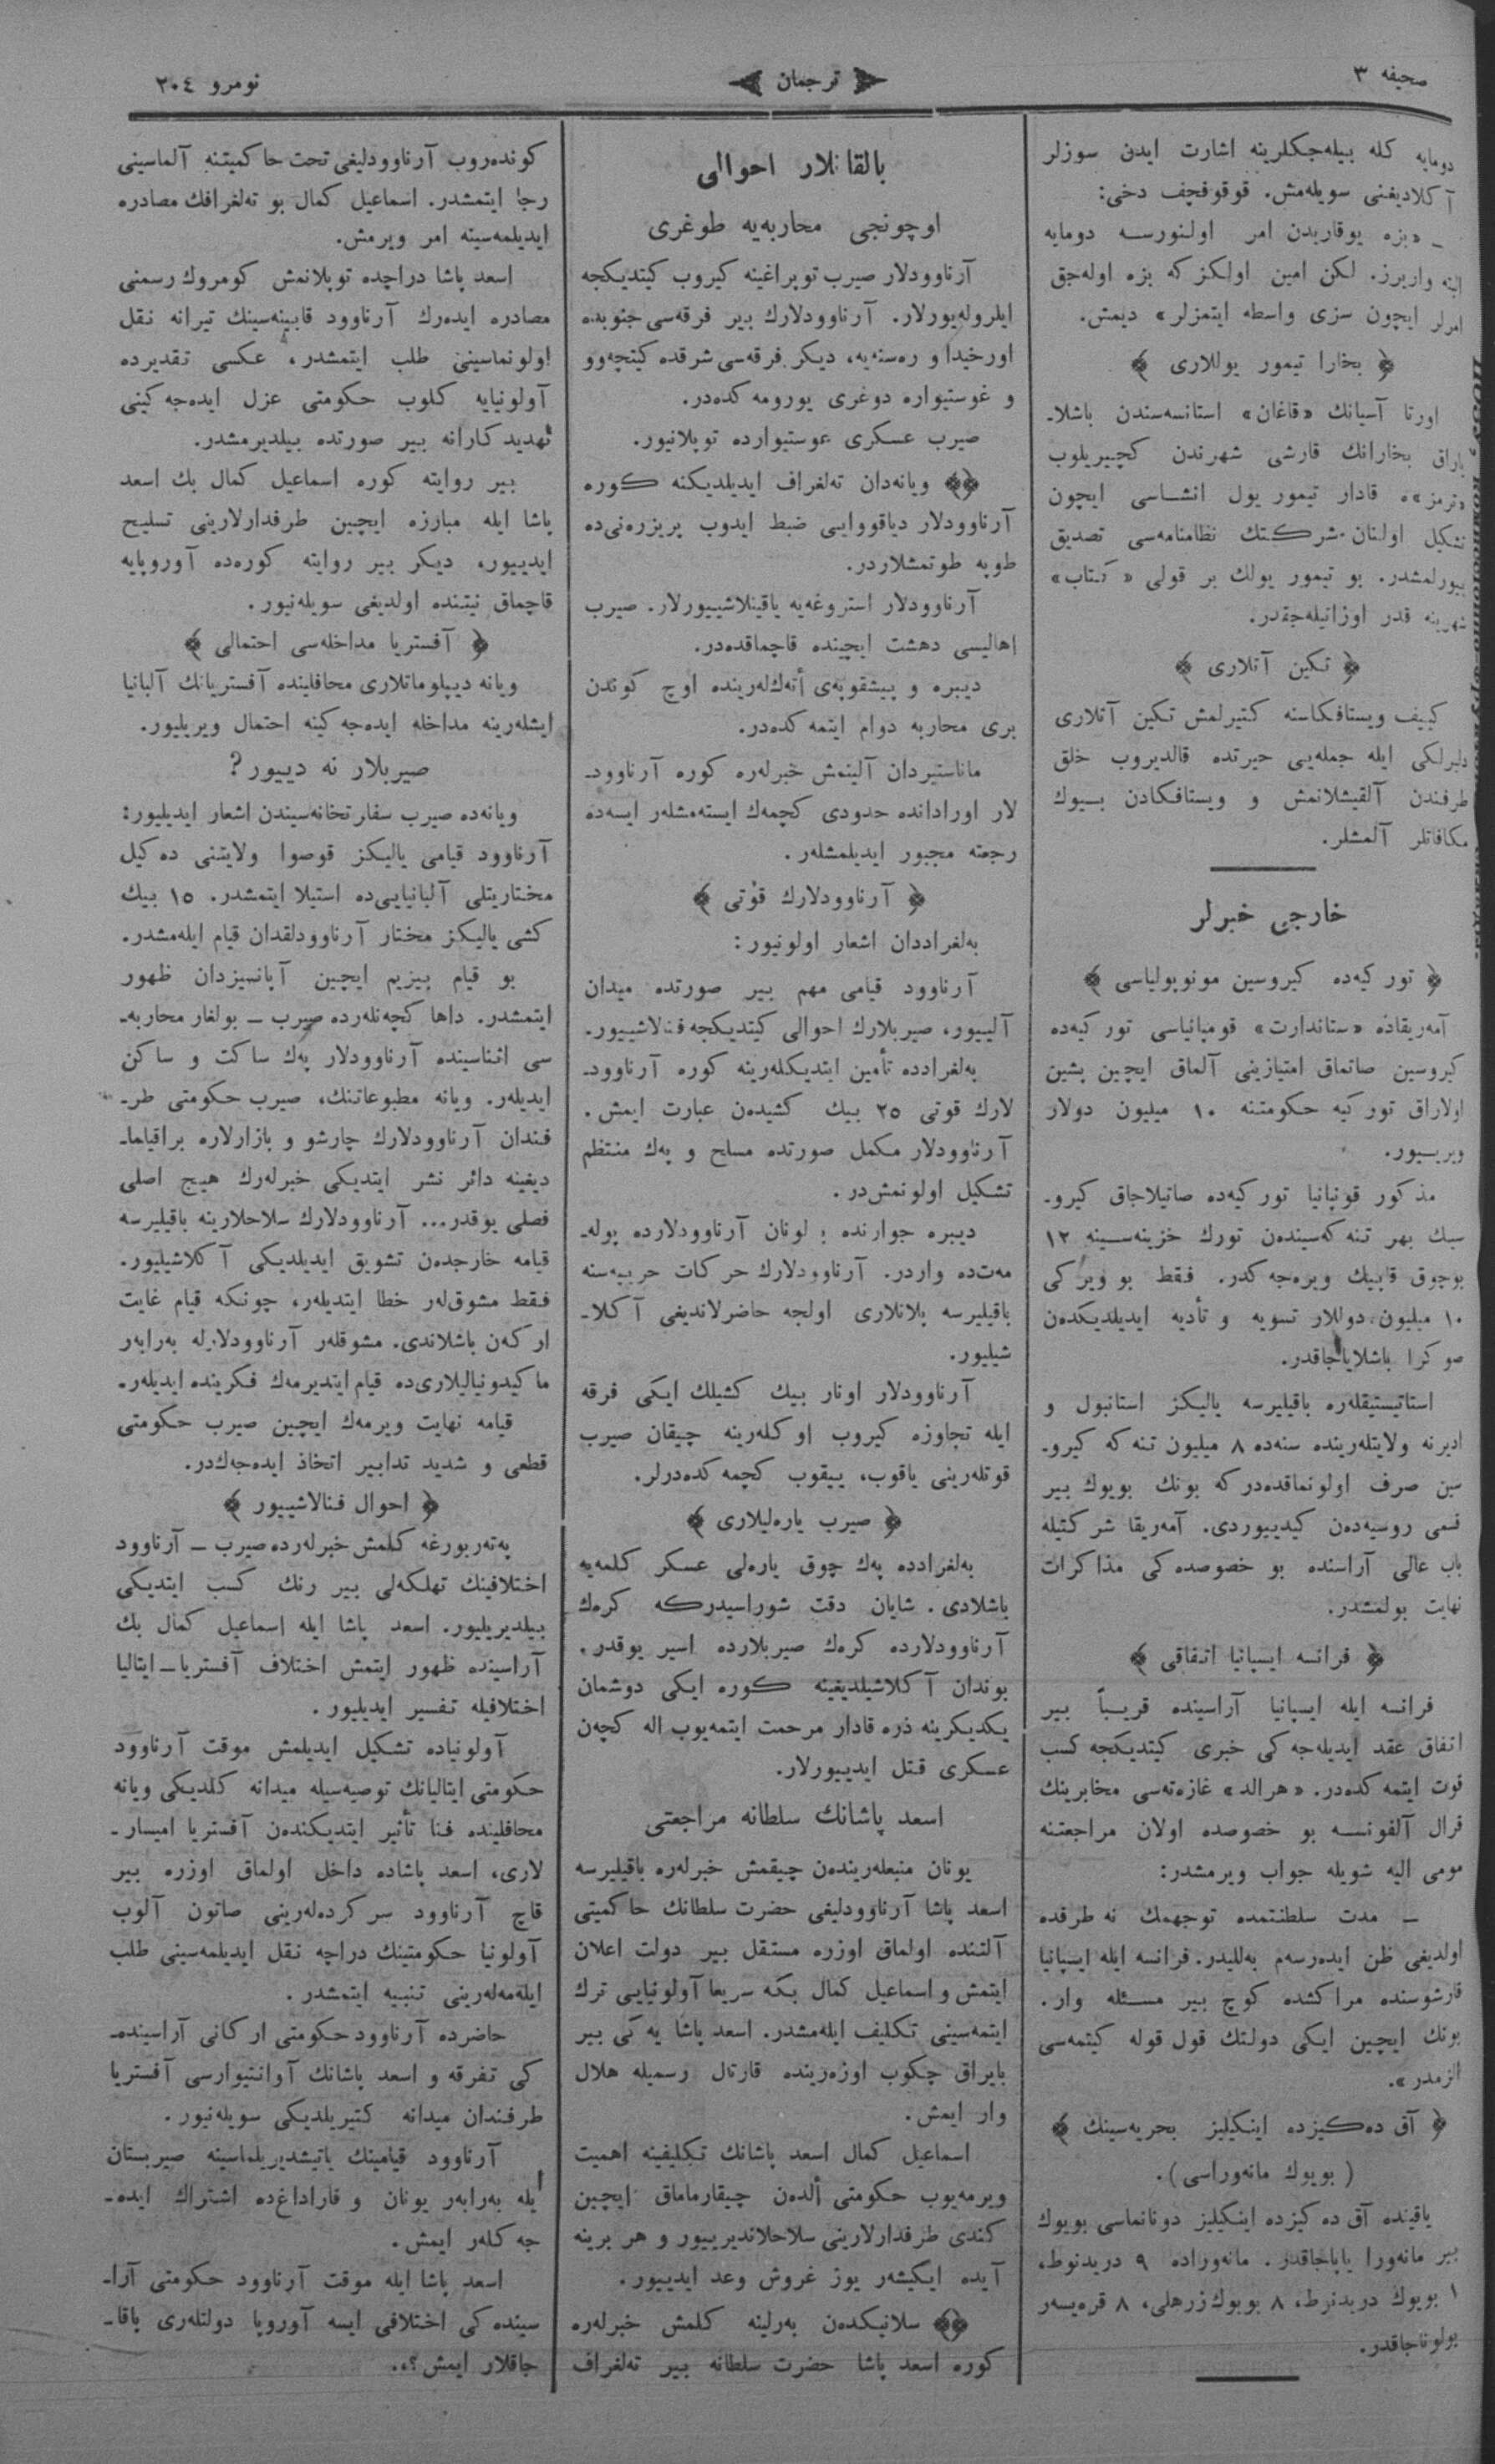 صحیفه ٣
ترجمان
نومرو ٢٠٤
دومایه کله بیله‌جکلرینه اشارت ایدن سوزلر
آکلادیغنی سویله‌مش. قوقوفچف دخی:
ـ «بزه یوقاریدن امر اولنورسه دومایه
البته واریرز. لکن امین اولکز که بزه اوله‌جق
امرلر ایچون سزی واسطه ایتمزلر» دیمش.
﴿ بخارا تیمور یوللاری ﴾
اورتا آسیانك «قاغان» استانسه‌سندن باشلاـ
یاراق بخارانك قارشی شهرندن کچیریلوب
«ترمز»ه قادار تیمور یول انشاسی ایچون
تشکیل اولنان شرکتك نظامنامه‌سی تصدیق
بیورلمشدر. بو تیمور یولك بر قولی «کتاب»
شهرینه قدر اوزانیله‌جقدر.
﴿ تکین آتلاری ﴾
کییف ویستافکاسنه کتیرلمش تکین آتلاری
دلبرلکی ایله جمله‌یی حیرتده قالدیروب خلق
طرفندن آلقیشلانمش و ویستافکادن بیوك
مکافاتلر آلمشلر.
خارجی خبرلر
﴿ تورکیه‌ده کیروسین مونوپولیاسی ﴾
آمه‌ریقاده «ستاندارت» قومپانیاسی تورکیه‌ده
کیروسین صاتماق امتیازینی آلماق ایچین پشین
اولاراق تورکیه حکومتنه ١٠ میلیون دولار
ویرییور.
مذکور قونپانیا تورکیه‌ده صاتیلاجاق کیروـ
سینك بهر تنه‌که‌سیندن تورك خزینه‌سینه ١٢
بوچوق قاپیك ویره‌جه‌کدر. فقط بو ویرکی
١٠ میلیون دوللار تسویه و تأدیه ایدیلدیکدن
صوکرا باشلایاجاقدر.
استاتیستیقله‌ره باقیلیرسه یالیکز استانبول و
ادیرنه ولایتله‌رینده سنه‌ده ٨ میلیون تنه‌که کیروـ
سین صرف اولونماقده‌در که بونك بویوك بیر
قسمی روسیه‌دن کیدییوردی. آمه‌ریقا شرکتیله
باب عالی آراسنده بو خصوصده‌کی مذاکرات
نهایت بولمشدر.
﴿ فرانسه ایسپانیا اتفاقی ﴾
فرانسه ایله ایسپانیا آراسینده قریباً بیر
اتفاق عقد ایدیله‌جه‌کی خبری کیتدیکجه کسب
قوت ایتمه‌کده‌در. «هرالد» غازه‌ته‌سی مخابرینك
قرال آلفونسه بو خصوصده اولان مراجعتنه
مومی الیه شویله جواب ویرمشدر:
ـ مدت سلطنتمده توجهمك نه طرفده
اولدیغی ظن ایده‌رسه‌م به‌للیدر. فرانسه ایله ایسپانیا
قارشوسنده مراکشده کوچ بیر مسئله وار.
بونك ایچین ایکی دولتك قول قوله کیتمه‌سی
الزمدر».
﴿ آق ده‌کیزده اینکیلیز بحریه‌سینك ﴾
(بویوك مانه‌وراسی).
یاقینده آق ده‌کیزده اینکیلیز دونانماسی بویوك
بیر مانه‌ورا یاپاجاقدر. مانه‌وراده ٩ دریدنوط،
١ بویوك دریدنوط، ٨ بویوك زرهلی، ٨ قره‌یسه‌ر
بولوناجاقدر.
بالقانلار احوالی
اوچونجی محاربه‌یه طوغری
آرناوودلار صیرب توپراغینه کیروب کیتدیکجه
ایلروله‌یورلار. آرناوودلارك بیر فرقه‌سی جنوبده
اورخیدا و ره‌سنه‌یه، دیکر فرقه‌سی شرقده کیتچه‌وو
و غوستیواره دوغری یورومه‌کده‌در.
صیرب عسکری غوستیوارده توپلانیور.
﴿﴾ ویانه‌دان ته‌لغراف ایدیلدیکنه کوره
آرناوودلار دیاقووایی ضبط ایدوب پریزره‌نی‌ده
طوپه طوتمشلاردر.
آرناوودلار استروغه‌یه یاقینلاشییورلار. صیرب
اهالیسی دهشت ایچینده قاچماقده‌در.
دیبره و پیشقوپه‌ی أته‌ك‌له‌رینده اوچ کوندن
بری محاربه دوام ایتمه‌کده‌در.
ماناستیردان آلینمش خبرله‌ره کوره آرناوودـ
لار اورادانده حدودی کچمه‌ك ایسته‌مشله‌ر ایسه‌ده
رجعته مجبور ایدیلمشله‌ر.
﴿ آرناوودلارك قوٙتی ﴾
به‌لغراددان اشعار اولونیور:
آرناوود قیامی مهم بیر صورتده میدان
آلییور، صیربلارك احوالی کیتدیکجه فنالاشییور.
به‌لغرادده تأمین ایتدیکله‌رینه کوره آرناوودـ
لارك قوتی ٢٥ بیك کشیدن عبارت ایمش.
آرناوودلار مکمل صورتده مسلح و په‌ك منتظم
تشکیل اولونمش‌در.
دیبره جوارنده لونان آرناوودلارده پوله‌ـ
مه‌ت‌ده واردر. آرناوودلارك حرکات حربیه‌سنه
باقیلیرسه پلانلاری اولجه حاضرلاندیغی آکلاـ
شیلیور.
آرناوودلار اونار بیك کشیلك ایکی فرقه
ایله تجاوزه کیروب اوکله‌رینه چیقان صیرب
قوتله‌رینی یاقوب، ییقوب کچمه‌کده‌درلر.
﴿ صیرب یاره‌لیلاری ﴾
به‌لغرادده په‌ك چوق یاره‌لی عسکر کلمه‌یه
باشلادی. شایان دقت شوراسیدرکه کره‌ك
آرناوودلارده کره‌ك صیربلارده اسیر یوقدر.
بوندان آکلاشیلدیغینه کوره ایکی دوشمان
یکدیکرینه ذره قادار مرحمت ایتمه‌یوب اله کچه‌ن
عسکری قتل ایدییورلار.
اسعد پاشانك سلطانه مراجعتی
یونان منبعله‌ریندن چیقمش خبرله‌ره باقیلیرسه
اسعد پاشا آرناوودلیغی حضرت سلطانك حاکمیتی
آلتنده اولماق اوزره مستقل بیر دولت اعلان
ایتمش و اسماعیل کمال بکه سریعا آولونیایی ترك
ایتمه‌سینی تکلیف ایله‌مشدر. اسعد پاشا یه‌کی بیر
بایراق چکوب اوزه‌رینده قارتال رسمیله هلال
وار ایمش.
اسماعیل کمال اسعد پاشانك تکلیفینه اهمیت
ویرمه‌یوب حکومتی ألدن چیقارماماق ایچین
کندی طرفدارلارینی سلاحلاندیرییور و هر برینه
آیده ایکیشه‌ر یوز غروش وعد ایدییور.
﴿﴾ سلانیکدن به‌رلینه کلمش خبرله‌ره
کوره اسعد پاشا حضرت سلطانه بیر ته‌لغراف
کونده‌روب آرناوودلیغی تحت حاکمیتنه آلماسینی
رجا ایتمشدر. اسماعیل کمال بو ته‌لغرافك مصادره
ایدیلمه‌سینه امر ویرمش.
اسعد پاشا دراچده توپلانمش کومروك رسمنی
مصادره ایده‌رك آرناوود قابینه‌سینك تیرانه نقل
اولونماسینی طلب ایتمشدر، عکسی تقدیرده
آولونیایه کلوب حکومتی عزل ایده‌جه‌کینی
تهدیدکارانه بیر صورتده بیلدیرمشدر.
بیر روایته کوره اسماعیل کمال بك اسعد
پاشا ایله مبارزه ایچین طرفدارلارینی تسلیح
ایدییور، دیکر بیر روایته کوره‌ده آوروپایه
قاچماق نیتنده اولدیغی سویله‌نیور.
﴿ آفستریا مداخله‌سی احتمالی ﴾
ویانه دیپلوماتلاری محافلینده آفستریانك آلبانیا
ایشله‌رینه مداخله ایده‌جه‌کینه احتمال ویریلیور.
صیربلار نه دییور؟
ویانه‌ده صیرب سفارتخانه‌سیندن اشعار ایدیلیور:
آرناوود قیامی یالیکز قوصوا ولایتنی ده‌کیل
مختاریتلی آلبانیایی‌ده استیلا ایتمشدر. ١٥ بیك
کشی یالیکز مختار آرناوودلقدان قیام ایله‌مشدر.
بو قیام بیزیم ایچین آپانسیزدان ظهور
ایتمشدر. داها کچه‌نله‌رده صیرب ـ بولغار محاربه‌ـ
سی اثناسینده آرناوودلار په‌ك ساکت و ساکن
ایدیله‌ر. ویانه مطبوعاتنك، صیرب حکومتی طرـ
فندان آرناوودلارك چارشو و بازارلاره براقیلماـ
دیغینه دائر نشر ایتدیکی خبرله‌رك هیچ اصلی
فصلی یوقدر... آرناوودلارك سلاحلارینه باقیلیرسه
قیامه خارجدن تشویق ایدیلدیکی آکلاشیلیور.
فقط مشوق‌له‌ر خطا ایتدیله‌ر، چونکه قیام غایت
ارکه‌ن باشلاندی. مشوقله‌ر آرناوودلارله به‌رابه‌ر
ماکیدونیالیلاری‌ده قیام ایتدیرمه‌ك فکرینده ایدیله‌ر.
قیامه نهایت ویرمه‌ك ایچین صیرب حکومتی
قطعی و شدید تدابیر اتخاذ ایده‌جه‌ك‌در.
﴿ احوال فنالاشییور ﴾
په‌ته‌ربورغه کلمش خبرله‌رده صیرب ـ آرناوود
اختلافینك تهلکه‌لی بیر رنك کسب ایتدیکی
بیلدیریلیور. اسعد پاشا ایله اسماعیل کمال بك
آراسینده ظهور ایتمش اختلاف آفستریا ـ ایتالیا
اختلافیله تفسیر ایدیلیور.
آولونیاده تشکیل ایدیلمش موقت آرناوود
حکومتی ایتالیانك توصیه‌سیله میدانه کلدیکی ویانه
محافلینده فنا تأثیر ایتدیکندن آفستریا امیسارـ
لاری، اسعد پاشاده داخل اولماق اوزره بیر
قاچ آرناوود سرکرده‌له‌رینی صاتون آلوب
آولونیا حکومتینك دراچه نقل ایدیلمه‌سینی طلب
ایله‌مه‌له‌رینی تنبیه ایتمشدر.
حاضرده آرناوود حکومتی ارکانی آراسینده‌ـ
کی تفرقه و اسعد پاشانك آوانتیوارسی آفستریا
طرفندان میدانه کتیریلدیکی سویله‌نیور.
آرناوود قیامینك یاتیشدیریلماسینه صیربستان
ایله به‌رابه‌ر یونان و قاراداغ‌ده اشتراك ایده‌ـ
جه‌کله‌ر ایمش.
اسعد پاشا ایله موقت آرناوود حکومتی آراـ
سینده‌کی اختلافی ایسه آوروپا دولتله‌ری یاقاـ
جاقلار ایمش؟..